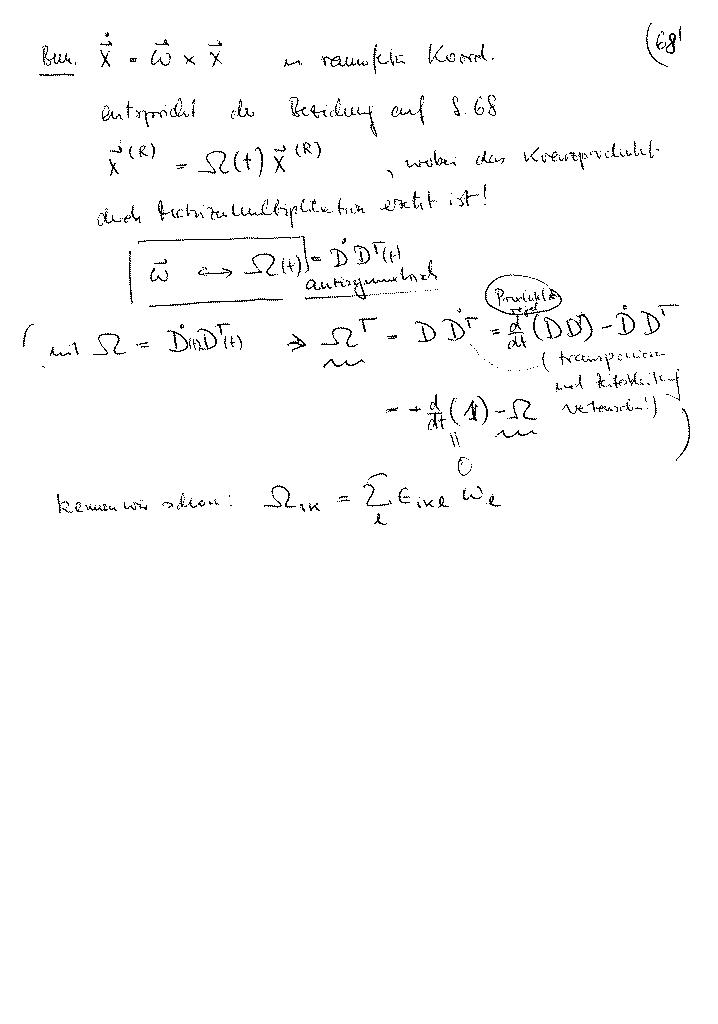 Bem. $\dot{\vec{x}} = \vec{\omega} \times \vec{x}$ in raumfesten Koord. (68'
entspricht der Beziehung auf S. 68
$\dot{\vec{x}}^{(R)} = \Omega(t) \vec{x}^{(R)}$, wobei das Kreuzprodukt
durch Matrizenmultiplikation ersetzt ist!
$\vec{\omega} \leftrightarrow \Omega(t) = \dot{D} D^T(t)$
antisymmetrisch
Produktregel
(mit $\Omega = \dot{D}(t) D^T(t)$ $\Rightarrow \Omega^T = D \dot{D}^T = \frac{d}{dt}(D D^T) - \dot{D} D^T$
(transponieren
und Zeitableitung
$= + \frac{d}{dt}(1) - \Omega$ vertauschen!)
=
0 )
kennen wir schon: $\Omega_{ik} = \sum_l \epsilon_{ikl} \omega_l$